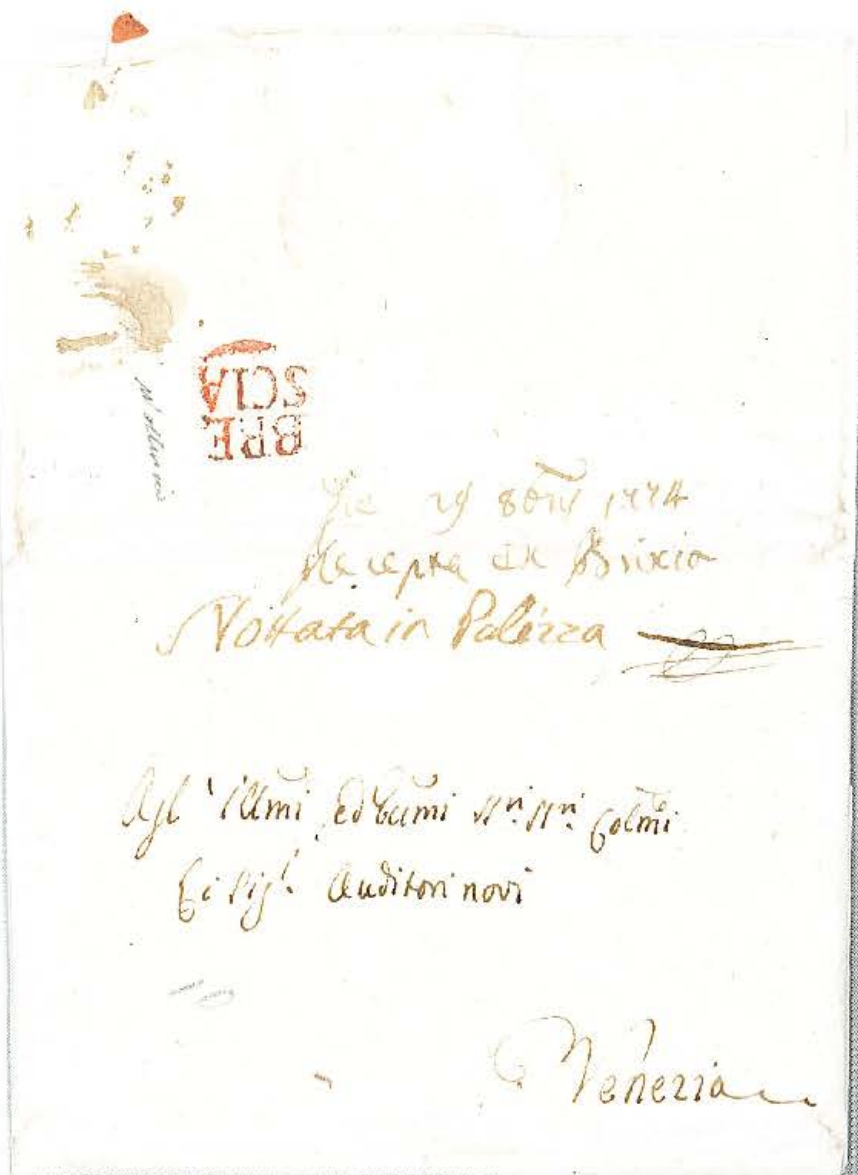 BRE
SCIA
29 8bris 1774
Recepta ex Brixia
Nottata in Polizza
Agl' Illmi ed Eccmi Sri Sri Colmi
Li Sigri Auditori novi
Venezia